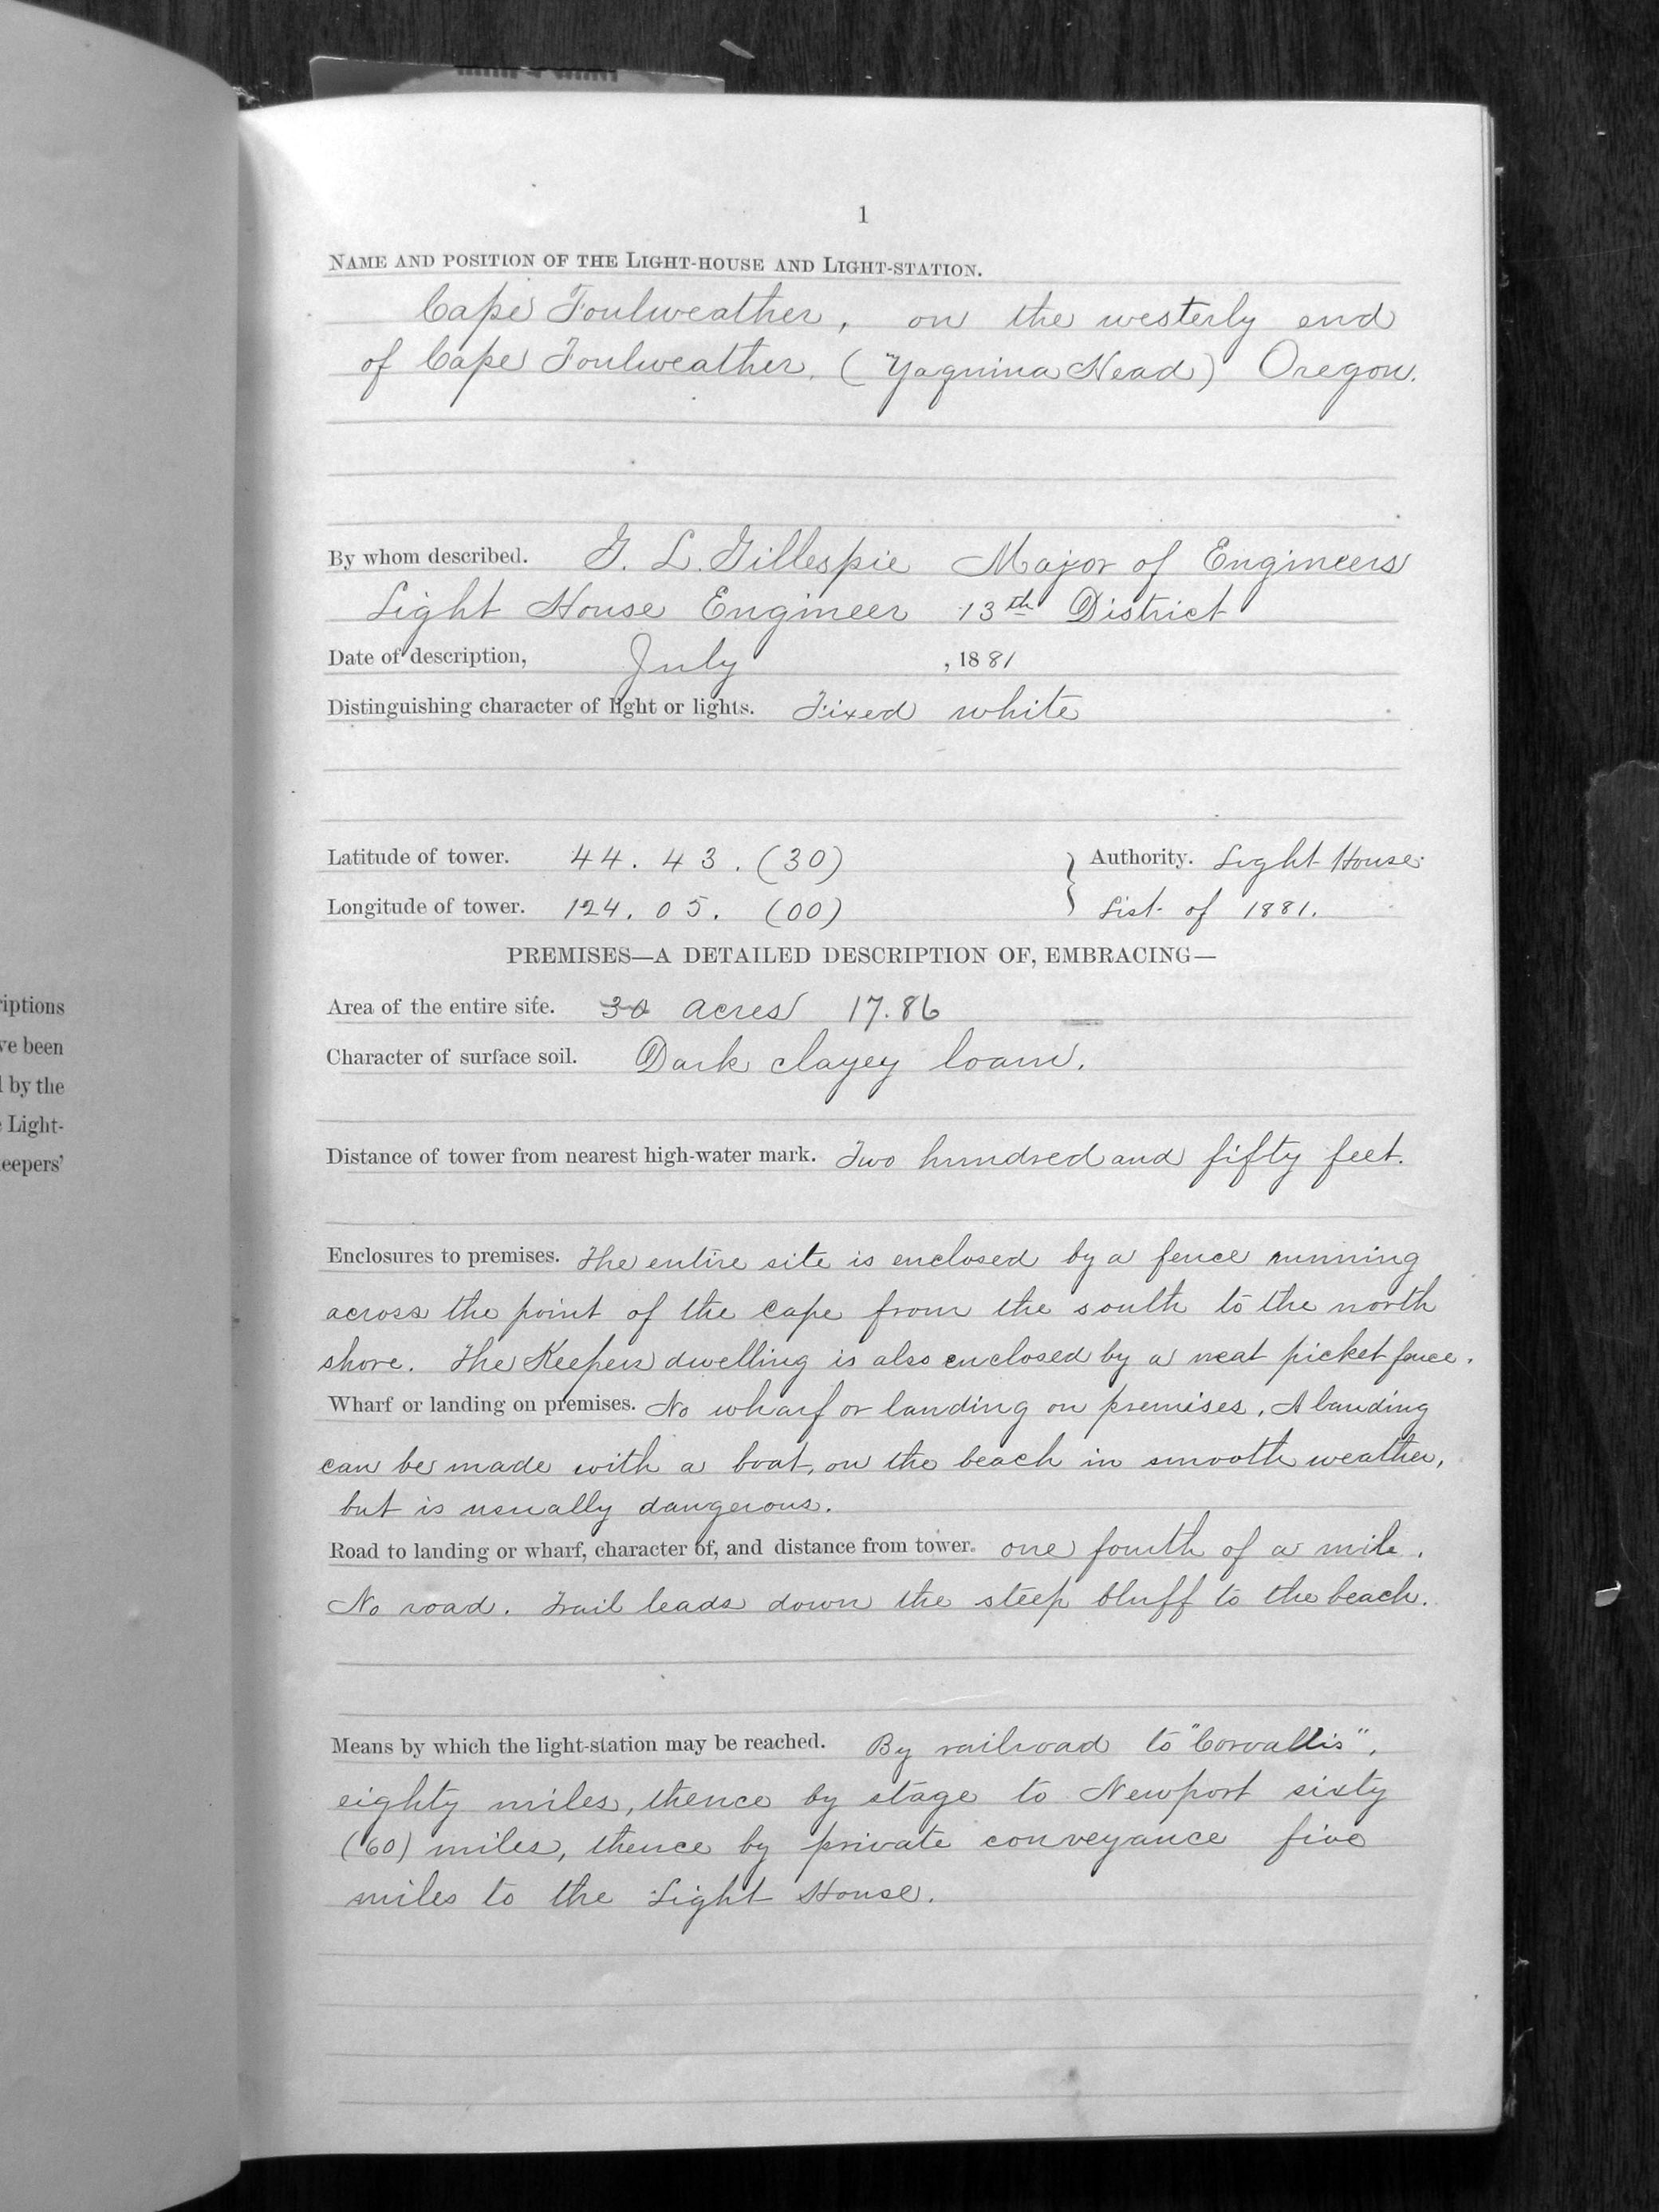 1
NAME AND POSITION OF THE LIGHT-HOUSE AND LIGHT-STATION.
Cape Foulweather, on the westerly end
of Cape Foulweather. (Yaquina Head) Oregon.
By whom described. G. L. Gillespie Major of Engineers
Light House Engineer 13th District
Date of description, July , 1881
Distinguishing character of light or lights. Fixed white
Latitude of tower. 44. 43. (30) } Authority. Light House
Longitude of tower. 124. 05. (00) List of 1881.
PREMISES—A DETAILED DESCRIPTION OF, EMBRACING—
Area of the entire site. 30 acres 17.86
Character of surface soil. Dark clayey loam.
Distance of tower from nearest high-water mark. Two hundred and fifty feet.
Enclosures to premises. The entire site is enclosed by a fence running
across the point of the cape from the south to the north
shore. The Keepers dwelling is also enclosed by a neat picket fence.
Wharf or landing on premises. No wharf or landing on premises. A landing
can be made with a boat, on the beach in smooth weather,
but is usually dangerous.
Road to landing or wharf, character of, and distance from tower. one fourth of a mile.
No road. Trail leads down the steep bluff to the beach.
Means by which the light-station may be reached. By railroad to "Corvallis",
eighty miles, thence by stage to Newport sixty
(60) miles, thence by private conveyance five
miles to the Light House.
riptions
ve been
l by the
Light-
eepers'